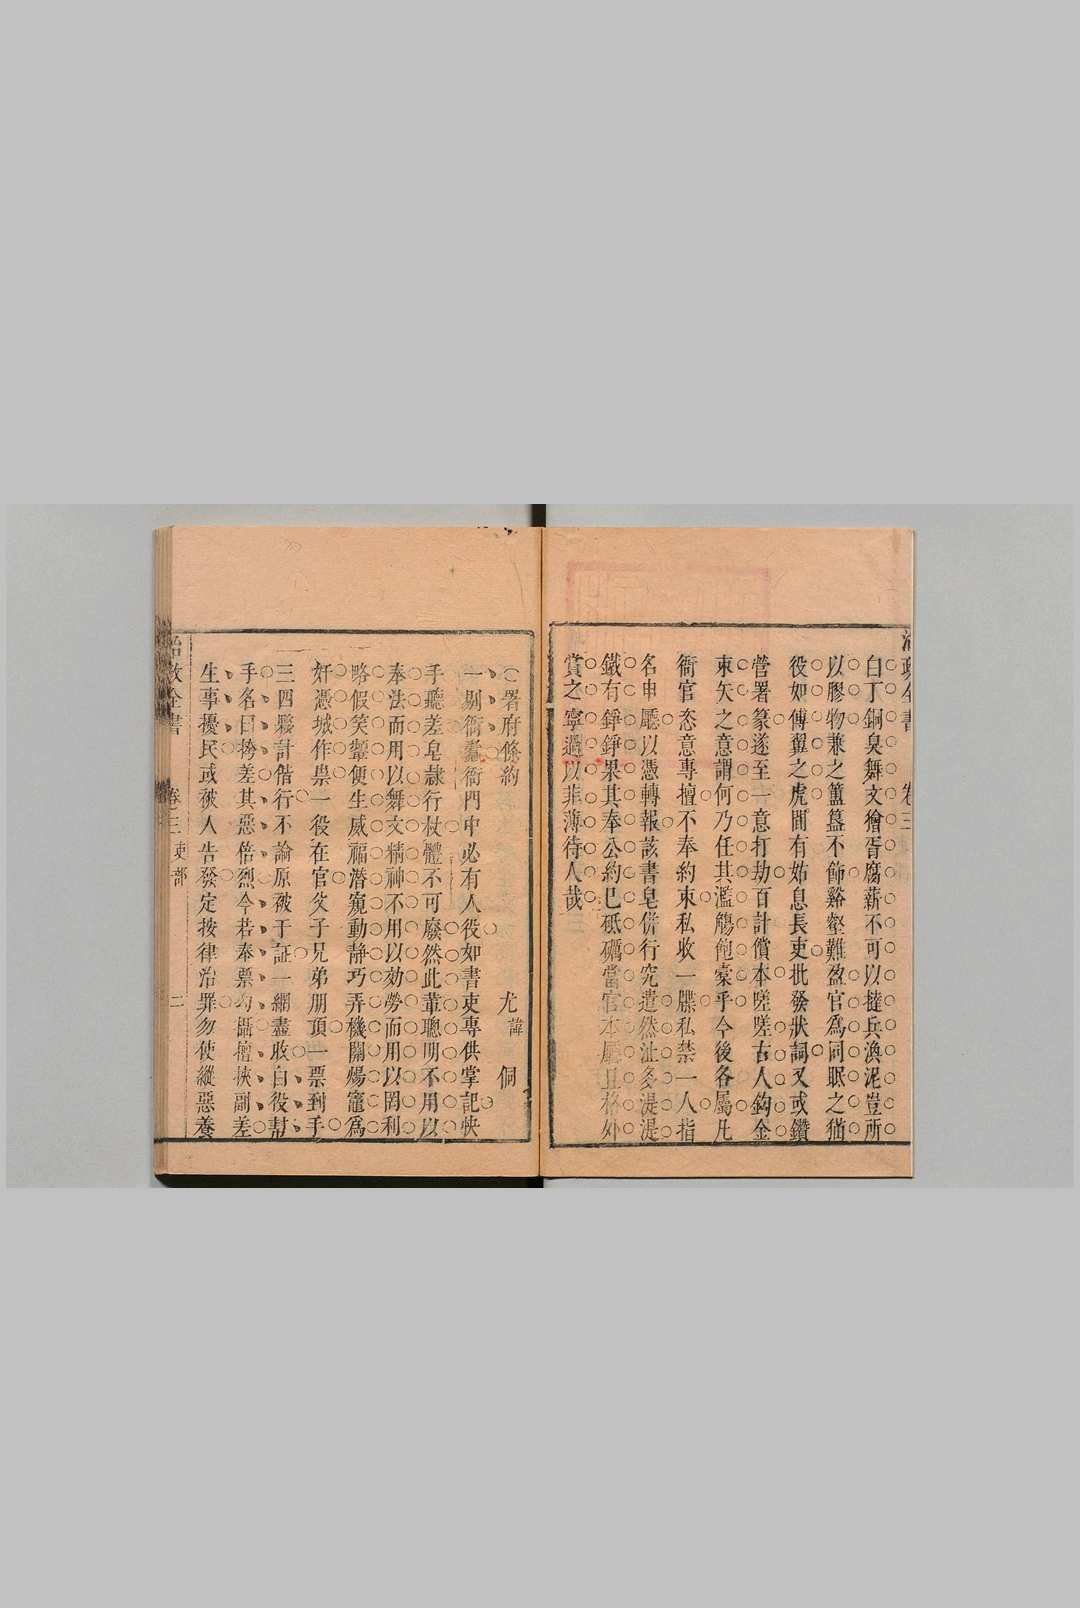 白丁銅臭舞文獪胥腐薪不可以撻兵渙泥豈所
以膠物兼之簠簋不飾谿壑難盈官為同眠之猶
役如傅翼之虎間有姑息長吏批發狀詞又或鑽
營署篆遂至一意打劫百計償本嗟嗟古人鈎金
束矢之意謂何乃任其濫觴飽橐乎今後各屬凡
衙官恣意專擅不奉約束私收一牒私禁一人指
名申廳以憑轉報該書皂併行究遣然沚多湜湜
鐵有錚錚果其奉公約已砥礪當官本廳且格外
賞之寧過以菲薄待人哉
治政全書 卷三
○署府條約 尤諱侗
一剔衙蠹衙門中必有人役如書吏專供掌記快
手聽差皂隸行杖體不可廢然此輩聰明不用以
奉法而用以舞文精神不用以効勞而用以罔利
略假笑顰便生威福潛窺動靜巧弄機關煬竈為
奸憑城作祟一役在官父子兄弟朋頂一票到手
三四夥計偕行不論原被干証一網盡收白役幫
手名曰擕差其惡倍烈今若奉票勾攝擅挾副差
生事擾民或被人告發定按律治罪勿使縱惡養
治政全書 卷三 吏部 二